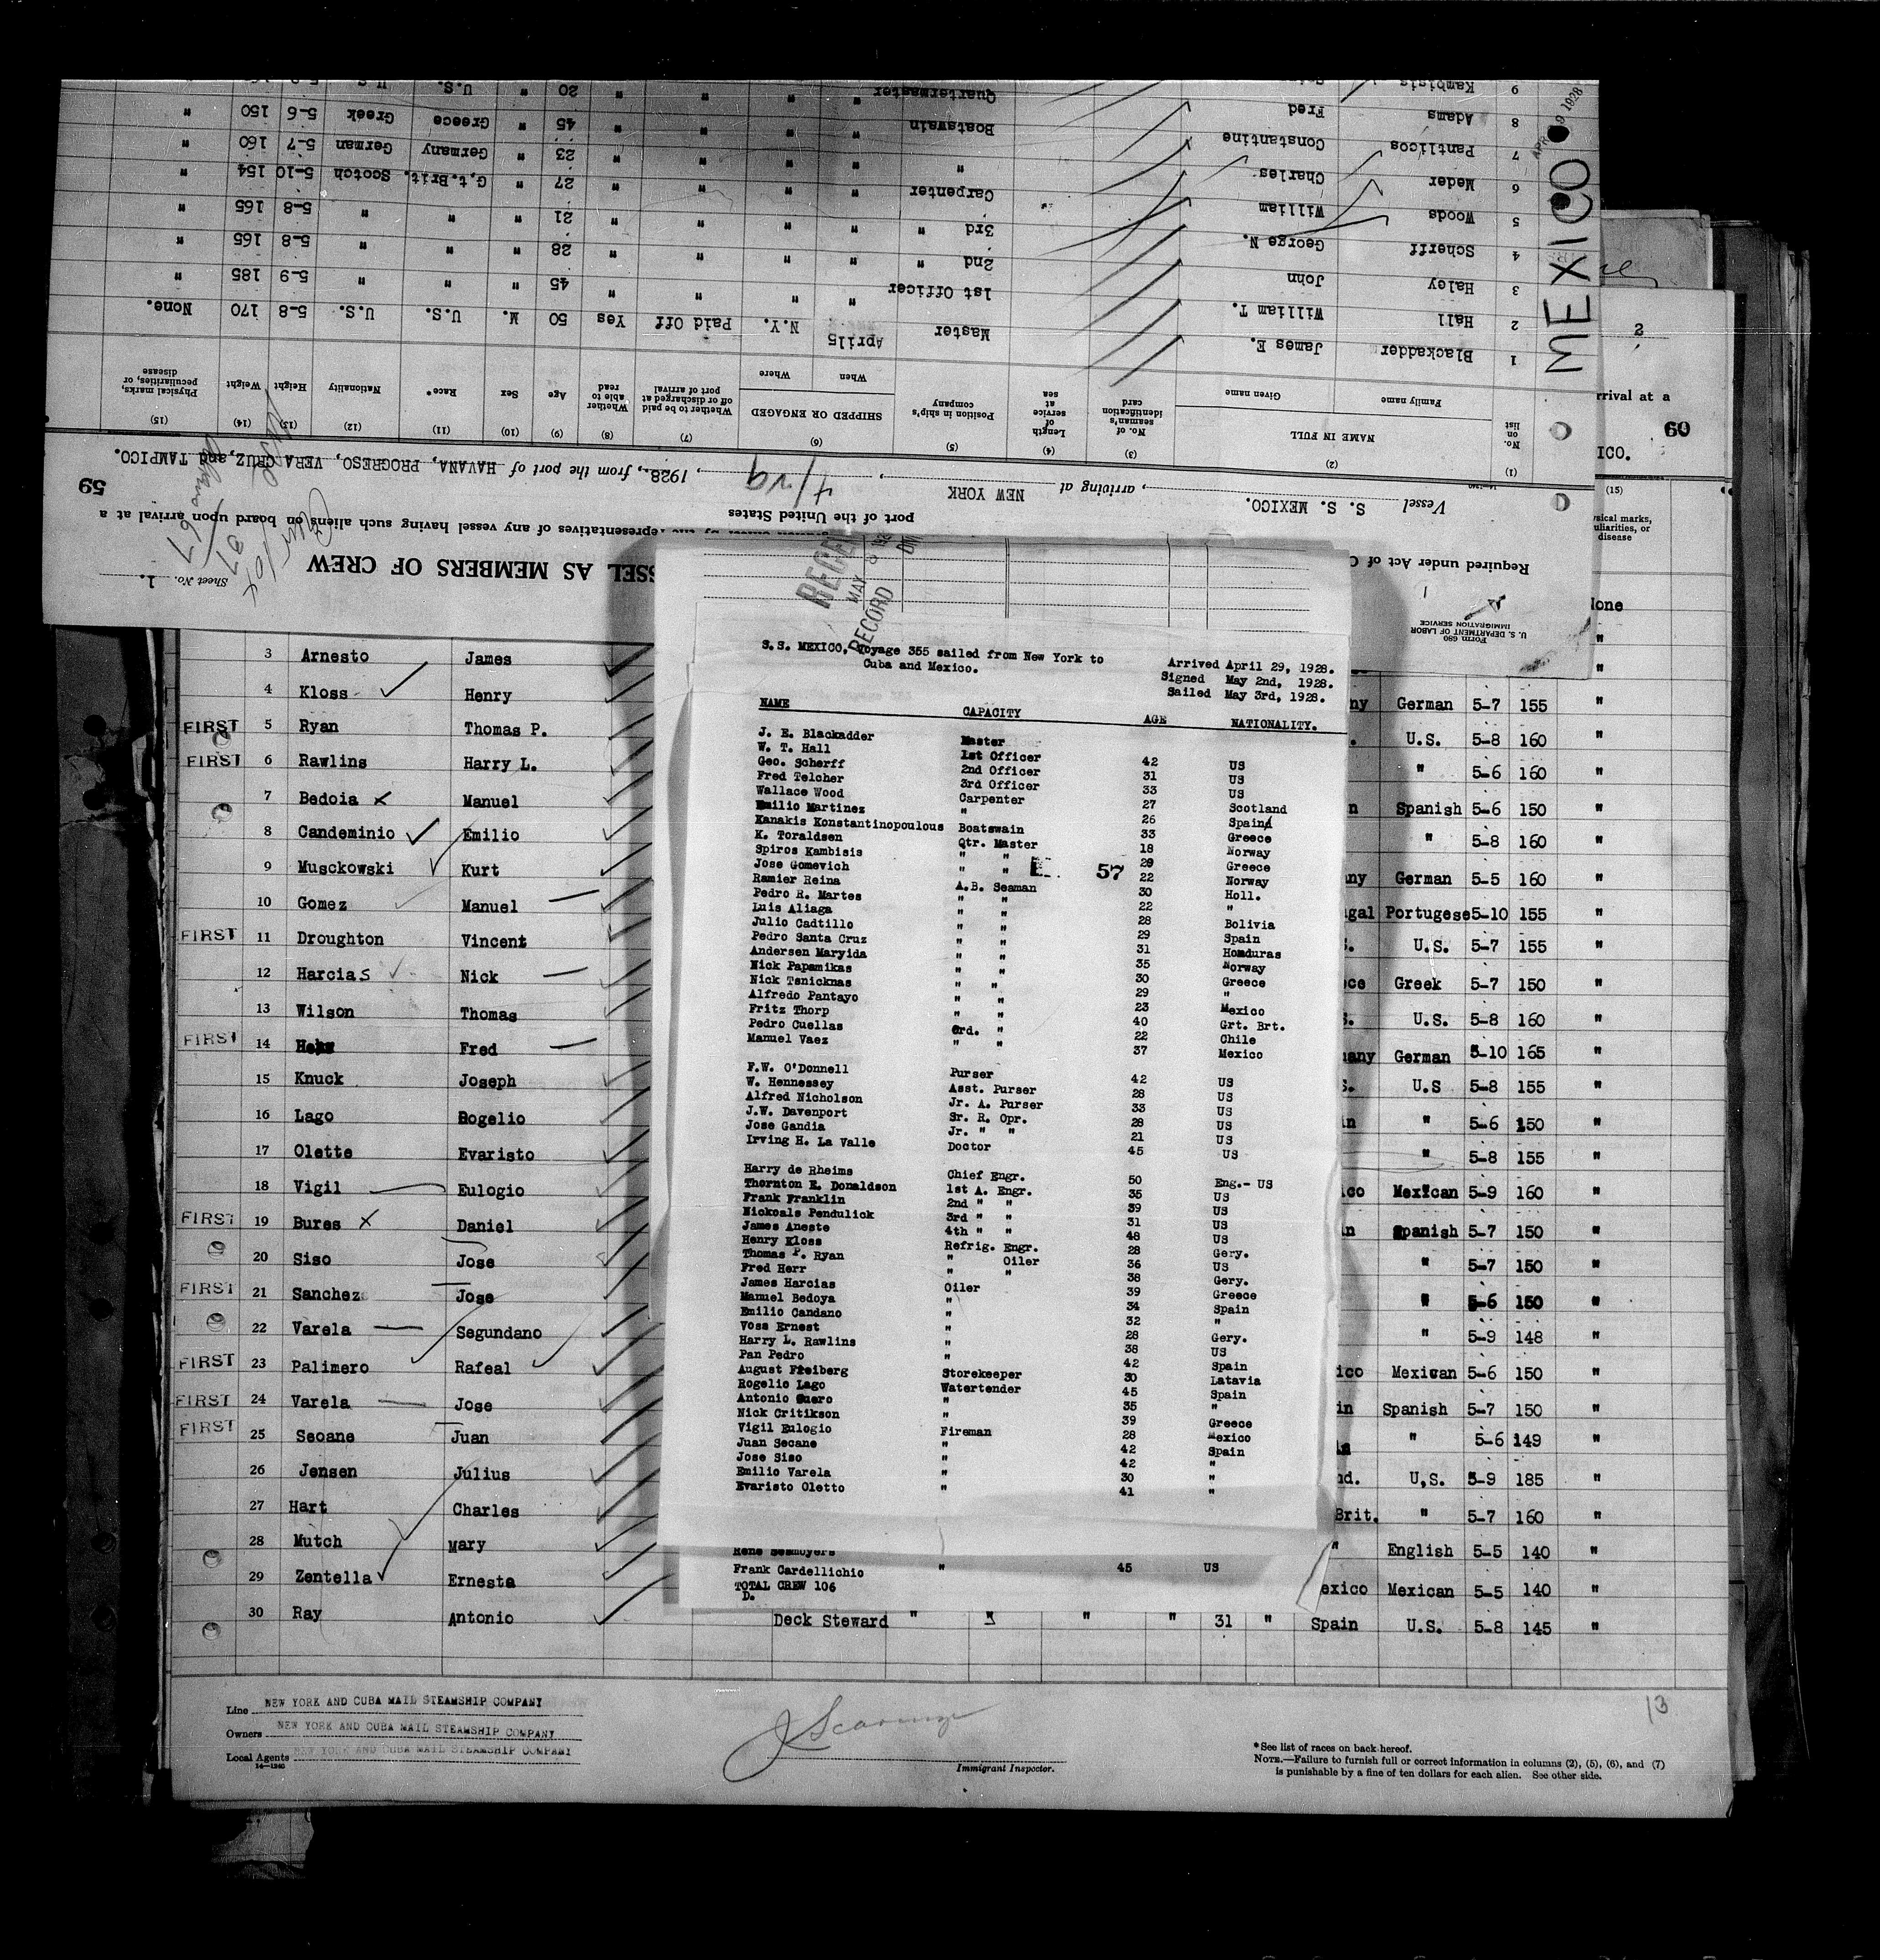 Form 680
U. S. DEPARTMENT OF LABOR
IMMIGRATION SERVICE
Sheet No. 1.
SSEL AS MEMBERS OF CREW
Required under Act of
representatives of any vessel having such aliens on board upon arrival at a
port of the United States
59
Vessel S. S. MEXICO. , arriving at NEW YORK , 4/29 , 1928., from the port of HAVANA, PROGRESO, VERA CRUZ, and TAMPICO.
(1) (2) (3) (4) (5) (6) (7) (8) (9) (10) (11) (12) (13) (14) (15)
No. on list NAME IN FULL No. of seaman's identification card Length of service at sea Position in ship's company SHIPPED OR ENGAGED Whether to be paid off or discharged at port of arrival Whether able to read Age Sex Race* Nationality Height Weight Physical marks, peculiarities, or disease
Family name Given name When Where
1 Blackadder James E. Master April5 N.Y. Paid Off Yes 50 M. U.S. U.S. 5-8 170 None.
2 Hall William T. 1st Officer " " " " 45 " " " 5-9 185 "
3 Haley John 2nd " " " " " 28 " " " 5-8 165 "
4 Scherff George N. 3rd " " " " " 21 " " " 5-8 165 "
5 Woods William Carpenter " " " " 27 " G.t.Brit. Scotch 5-10 154 "
6 Meder Charles " " " " " 23 " Germany German 5-7 160 "
7 Pantlicos Constantine Boatswain " " " " 45 " Greece Greek 5-6 150 "
8 Adams Fred Quartermaster " " " " 20 " U.S. U.S.
9 Kambisis
MEXICO
APR 29 1928
2
rrival at a
60
ICO.
(15)
sical marks,
uliarities, or
disease
RECORD
S.S. MEXICO, Voyage 355 sailed from New York to
Cuba and Mexico.
Arrived April 29, 1928.
Signed May 2nd, 1928.
Sailed May 3rd, 1928.
NAME CAPACITY AGE NATIONALITY.
J. E. Blackadder Master
W. T. Hall 1st Officer 42 US
Geo. Scherff 2nd Officer 31 US
Fred Telcher 3rd Officer 33 US
Wallace Wood Carpenter 27 Scotland
Emilio Martinez " 26 Spain
Kanakis Konstantinopoulous Boatswain 33 Greece
K. Toraldsen Qtr. Master 18 Norway
Spiros Kambisis " " 29 Greece
Jose Gomevich " " 22 Norway
57
Ramier Reina A.B. Seaman 30 Holl.
Pedro R. Martes " " 22 "
Luis Aliaga " " 28 Bolivia
Julio Cadtillo " " 29 Spain
Pedro Santa Cruz " " 31 Honduras
Andersen Maryida " " 35 Norway
Nick Papamikas " " 30 Greece
Nick Tsnicknas " " 29 "
Alfredo Pantayo " " 23 Mexico
Fritz Thorp " " 40 Grt. Brt.
Pedro Cuellas Ord. " 22 Chile
Manuel Vaez " " 37 Mexico
F.W. O'Donnell Purser 42 US
W. Hennessey Asst. Purser 28 US
Alfred Nicholson Jr. A. Purser 33 US
J.W. Davenport Sr. R. Opr. 28 US
Jose Gandia Jr. " " 21 US
Irving H. La Valle Doctor 45 US
Harry de Rheims Chief Engr. 50 Eng.- US
Thornton E. Donaldson 1st A. Engr. 35 US
Frank Franklin 2nd " " 39 US
Nickoals Pendulick 3rd " " 31 US
James Aneste 4th " " 48 US
Henry Kloss Refrig. Engr. 28 Gery.
Thomas P. Ryan " Oiler 36 US
Fred Herr " " 38 Gery.
James Harcias Oiler 39 Greece
Manuel Bedoya " 34 Spain
Emilio Candano " 32 "
Voss Ernest " 28 Gery.
Harry L. Rawlins " 38 US
Pan Pedro " 42 Spain
August Freiberg Storekeeper 30 Latavia
Rogelio Lago Watertender 45 Spain
Antonio Suero " 35 "
Nick Critikson " 39 Greece
Vigil Eulogio Fireman 28 Mexico
Juan Secane " 42 Spain
Jose Siso " 42 "
Emilio Varela " 30 "
Evaristo Oletto " 41 "
Rene Desmoyers
Frank Cardellichio " 45 US
TOTAL CREW 106
D.
None
"
3 Arnesto James "
4 Kloss Henry ny German 5-7 155 "
FIRST 5 Ryan Thomas P. . U.S. 5-8 160 "
FIRST 6 Rawlins Harry L. " 5-6 160 "
7 Bedoia Manuel n Spanish 5-6 150 "
8 Candeminio Emilio " 5-8 160 "
9 Musckowski Kurt any German 5-5 160 "
10 Gomez Manuel gal Portugese 5-10 155 "
FIRST 11 Droughton Vincent . U.S. 5-7 155 "
12 Harcias Nick ce Greek 5-7 150 "
13 Wilson Thomas . U.S. 5-8 160 "
FIRST 14 Fred many German 5-10 165 "
15 Knuck Joseph . U.S 5-8 155 "
16 Lago Rogelio in " 5-6 150 "
17 Olette Evaristo " 5-8 155 "
18 Vigil Eulogio ico Mexican 5-9 160 "
FIRST 19 Bures Daniel in Spanish 5-7 150 "
20 Siso Jose " 5-7 150 "
FIRST 21 Sanchez Jose " 5-6 150 "
22 Varela Segundano " 5-9 148 "
FIRST 23 Palimero Rafeal ico Mexican 5-6 150 "
FIRST 24 Varela Jose in Spanish 5-7 150 "
FIRST 25 Seoane Juan " 5-6 149 "
26 Jensen Julius nd. U.S. 5-9 185 "
27 Hart Charles Brit. " 5-7 160 "
28 Mutch Mary " English 5-5 140 "
29 Zentella Ernesta exico Mexican 5-5 140 "
30 Ray Antonio Deck Steward " " " " 31 " Spain U.S. 5-8 145 "
Line NEW YORK AND CUBA MAIL STEAMSHIP COMPANY
Owners NEW YORK AND CUBA MAIL STEAMSHIP COMPANY
Local Agents NEW YORK AND CUBA MAIL STEAMSHIP COMPANY
14-1240
Immigrant Inspector.
13
*See list of races on back hereof.
NOTE.—Failure to furnish full or correct information in columns (2), (5), (6), and (7)
is punishable by a fine of ten dollars for each alien. See other side.